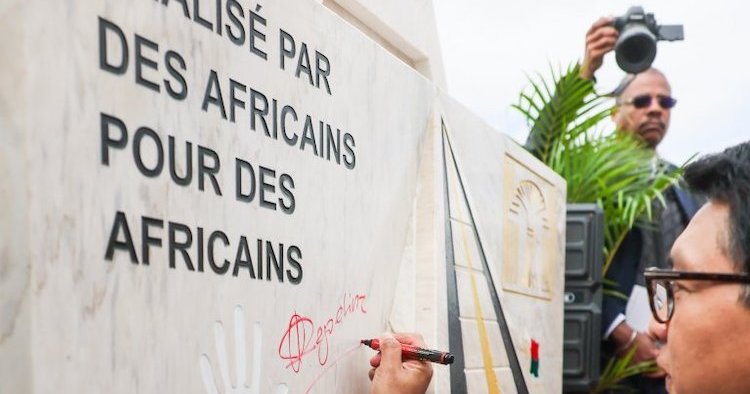 ALISÉ PAR
DES AFRICAINS
POUR DES
AFRICAINS